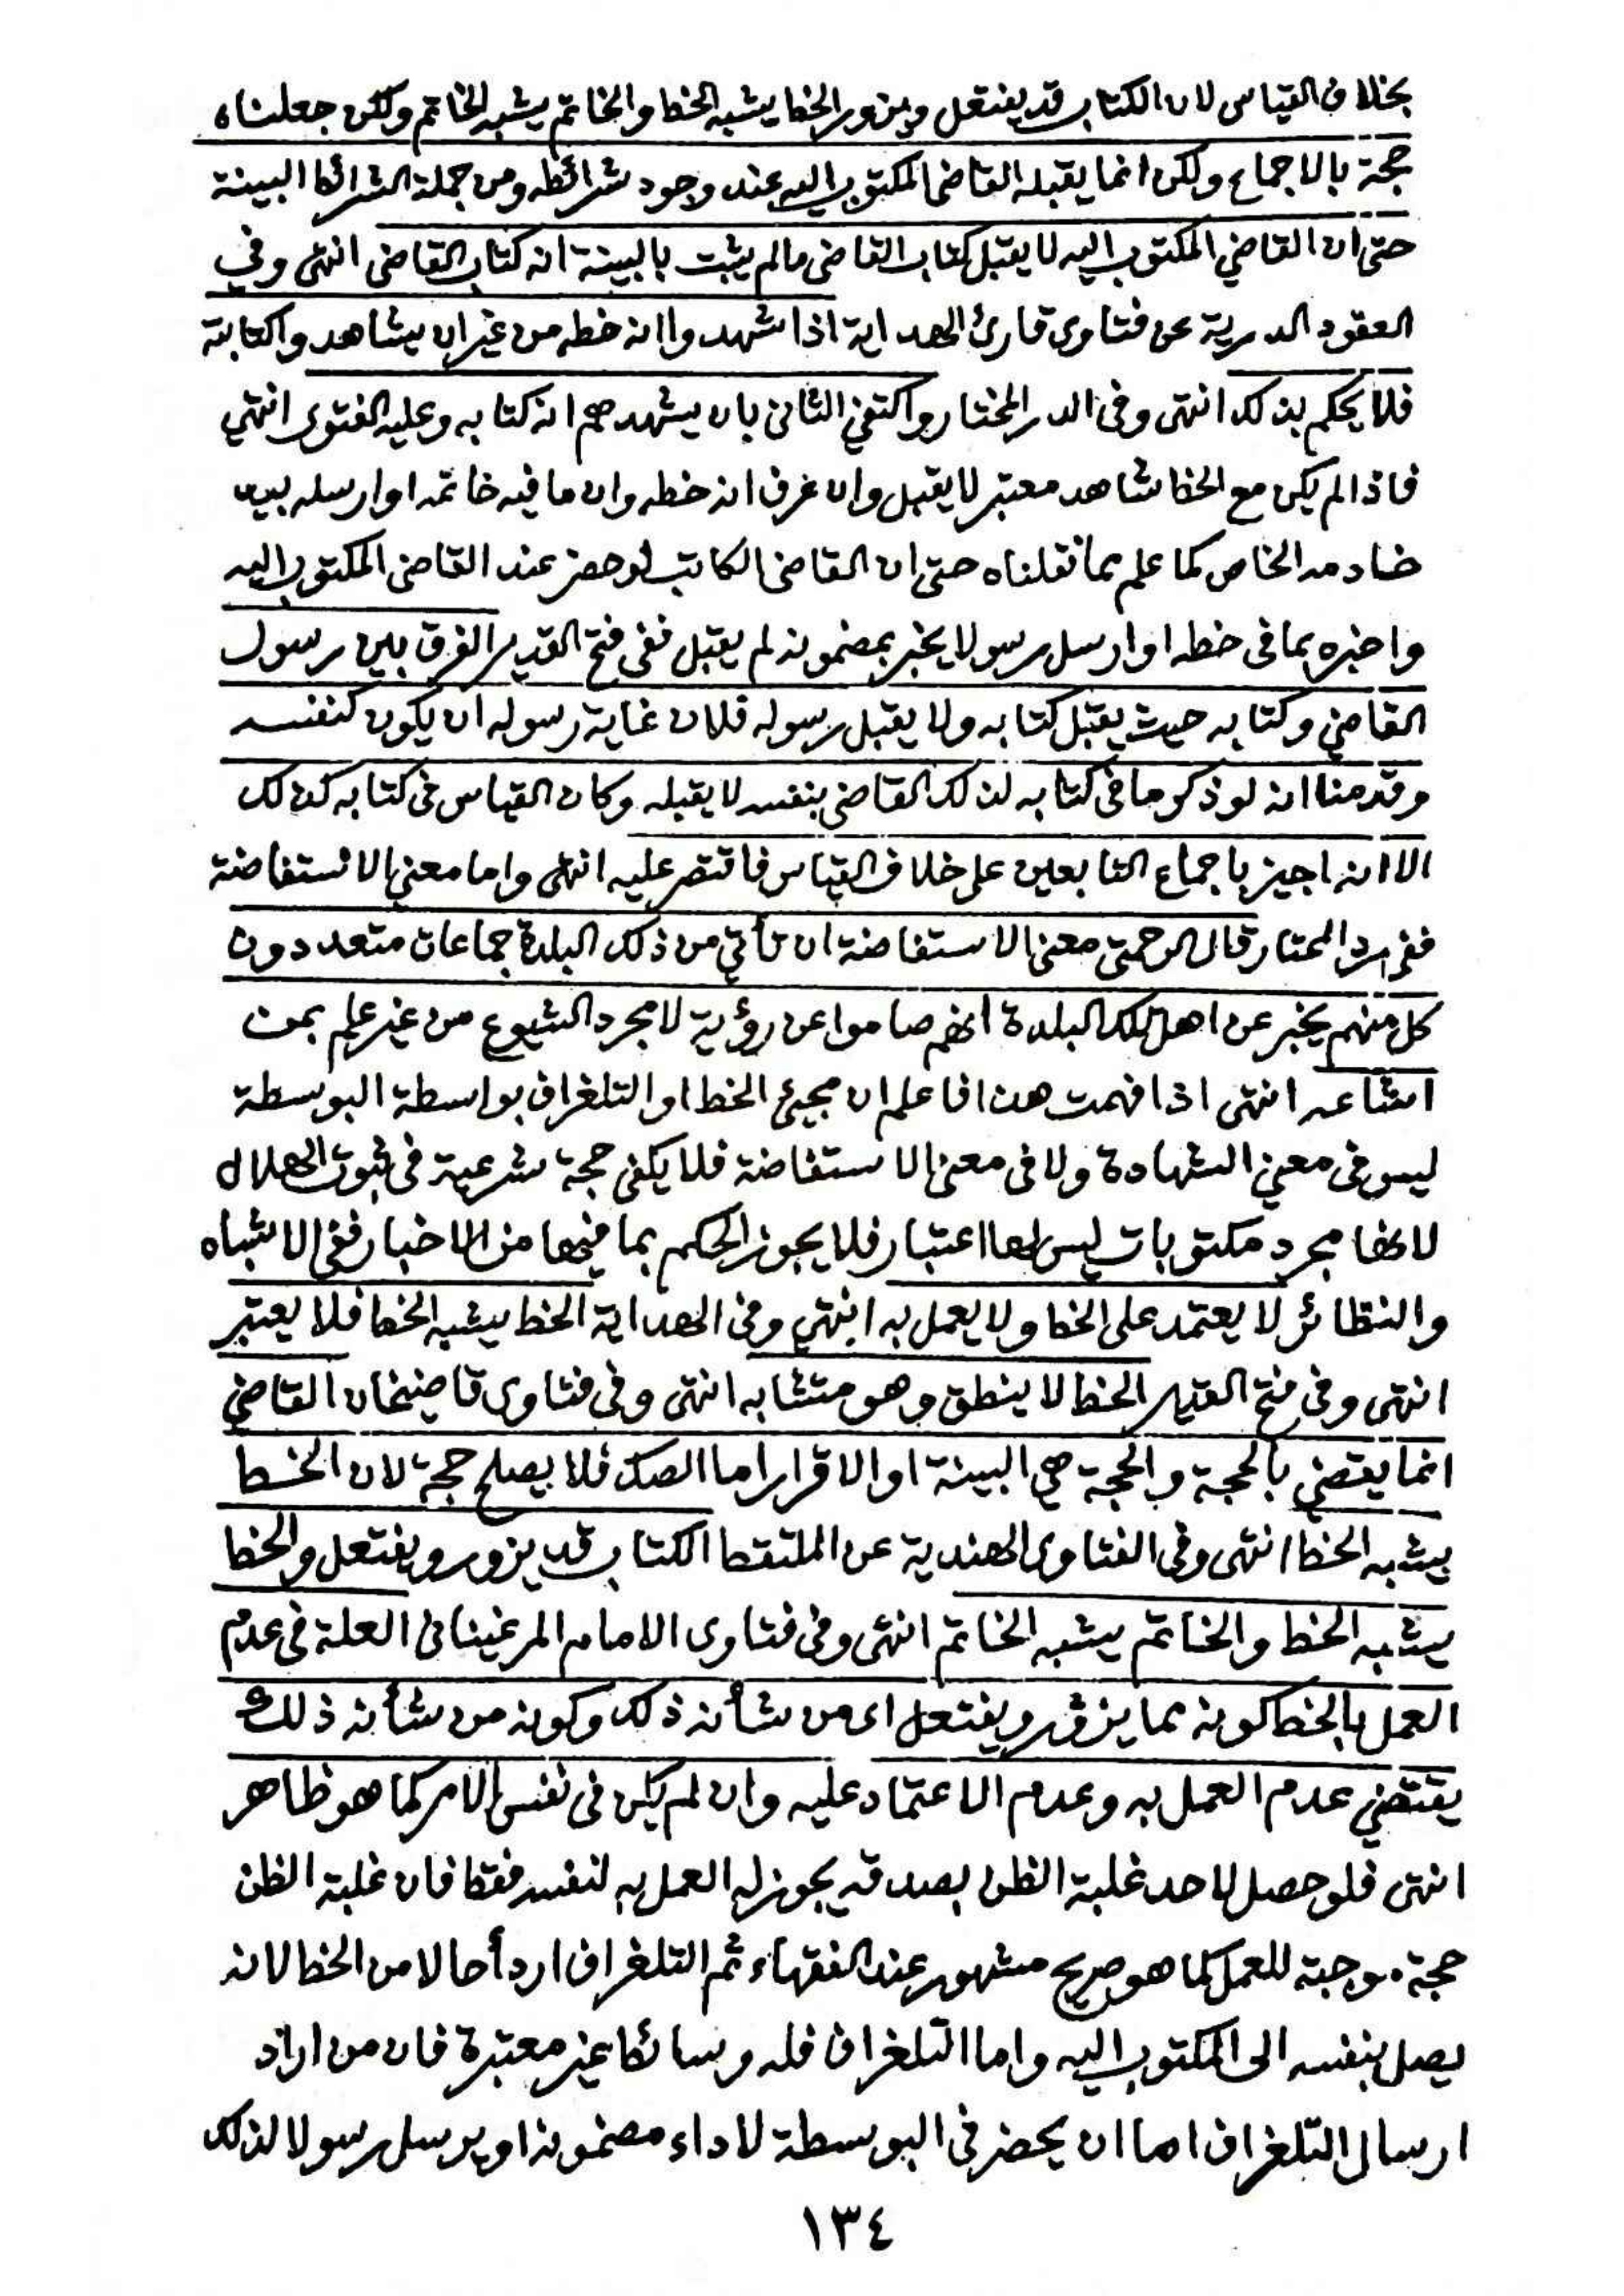 بخلاف القياس لان الكتاب قد يفتعل ويزور والخط يشبه الخط والخاتم يشبه الخاتم ولكن جعلناه
حجة بالاجماع ولكن انما يقبله القاضي المكتوب اليه عند وجود شرائطه ومن جملة الشرائط البينة
حتى ان القاضي المكتوب اليه لا يقبل كتاب القاضي مالم يثبت بالبينة انه كتاب القاضي انتهى وفي
العقود الدرية عن فتاوى قارئ الهداية اذا شهدوا انه خطه من غير ان يشاهدوا كتابته
فلا يحكم بذلك انتهى وفي الدر المختار واكتفى الثاني بان يشهدهم انه كتابه وعليه الفتوى انتهى
فاذا لم يكن مع الخط شاهد معتبر لا يقبل وان عرف انه خطه وان ما فيه خاتمه او ارسله بيد
خادمه الخاص كما علم مما نقلناه حتى ان القاضي الكاتب لو حضر عند القاضي المكتوب اليه
واخبره بما في خطه او ارسل رسولا يخبر بمضمونه لم يقبل ففي فتح القدير الفرق بين رسول
القاضي وكتابه حيث يقبل كتابه ولا يقبل رسوله فلان غاية رسوله ان يكون كنفسه
وقدمنا انه لو ذكر ما في كتابه لذلك القاضي بنفسه لا يقبله وكان القياس في كتابه كذلك
الا انه اجيز باجماع التابعين على خلاف القياس فاقتصر عليه انتهى واما معنى الاستفاضة
ففي رد المحتار قال الرحمتي معنى الاستفاضة ان تأتي من ذلك البلدة جماعات متعددون
كل منهم يخبر عن اهل تلك البلدة انهم صاموا عن رؤية لا مجرد الشيوع من غير علم بمن
اشاعه انتهى اذا فهمت هذا فاعلم ان مجيئ الخط او التلغراف بواسطة البوسطة
ليس في معنى الشهادة ولا في معنى الاستفاضة فلا يكفي حجة شرعية في ثبوت الهلال
لانها مجرد مكتوبات ليس لها اعتبار فلا يجوز الحكم بما فيها من الاخبار ففي الاشباه
والنظائر لا يعتمد على الخط ولا يعمل به انتهى وفي الهداية الخط يشبه الخط فلا يعتبر
انتهى وفي فتح القدير الخط لا ينطق وهو متشابه انتهى وفي فتاوى قاضيخان القاضي
انما يقضي بالحجة والحجة هي البينة او الاقرار اما الصك فلا يصلح حجة لان الخط
يشبه الخط انتهى وفي الفتاوى الهندية عن الملتقط الكتاب قد يزور ويفتعل والخط
يشبه الخط والخاتم يشبه الخاتم انتهى وفي فتاوى الامام المرغيناني العلة في عدم
العمل بالخط كونه مما يزور ويفتعل اى من شأنه ذلك وكونه من شأنه ذلك
يقتضي عدم العمل به وعدم الاعتماد عليه وان لم يكن في نفس الامر كما هو ظاهر
انتهى فلو حصل لاحد غلبة الظن بصدقه يجوز له العمل به لنفسه فقط فان غلبة الظن
حجة موجبة للعمل كما هو صريح مشهور عند الفقهاء ثم التلغراف اردأ حالا من الخط لانه
يصل بنفسه الى المكتوب اليه واما التلغراف فله وسائط غير معتبرة فان من اراد
ارسال التلغراف اما ان يحضر في البوسطة لاداء مضمونه او يرسل رسولا لذلك
١٣٤